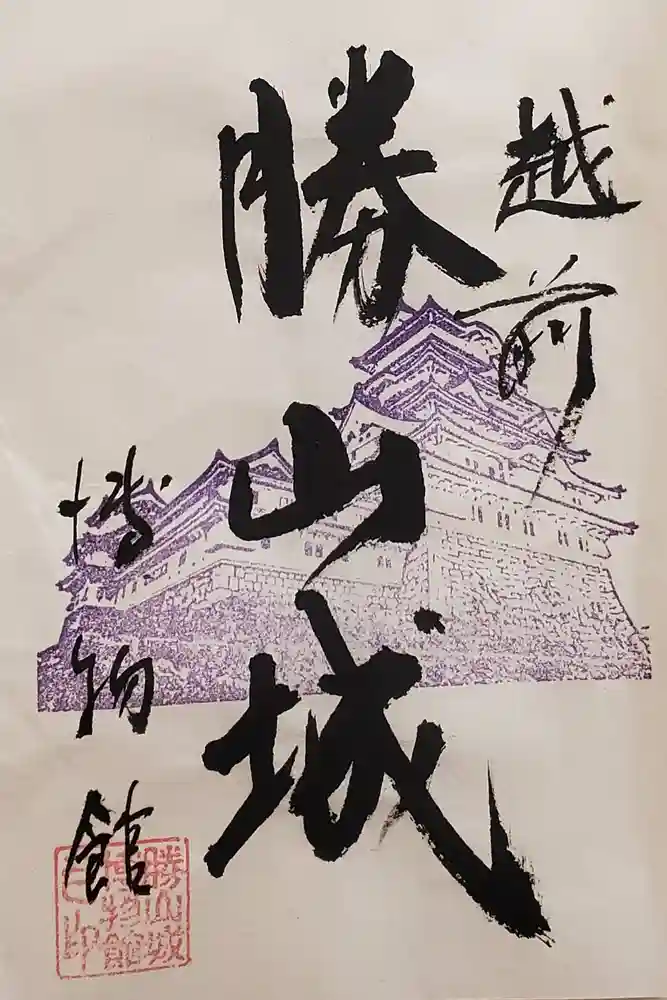 越前
勝山城
博物館
勝山城
博物館
之印